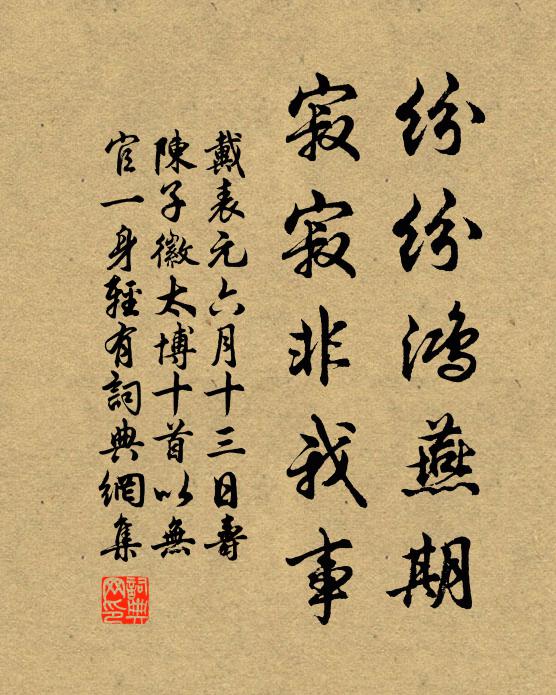 紛紛鴻燕期
寂寂非我事
戴表元六月十三日壽
陳子徽太博十首以無
官一身輕有詞典網集
詞典网印